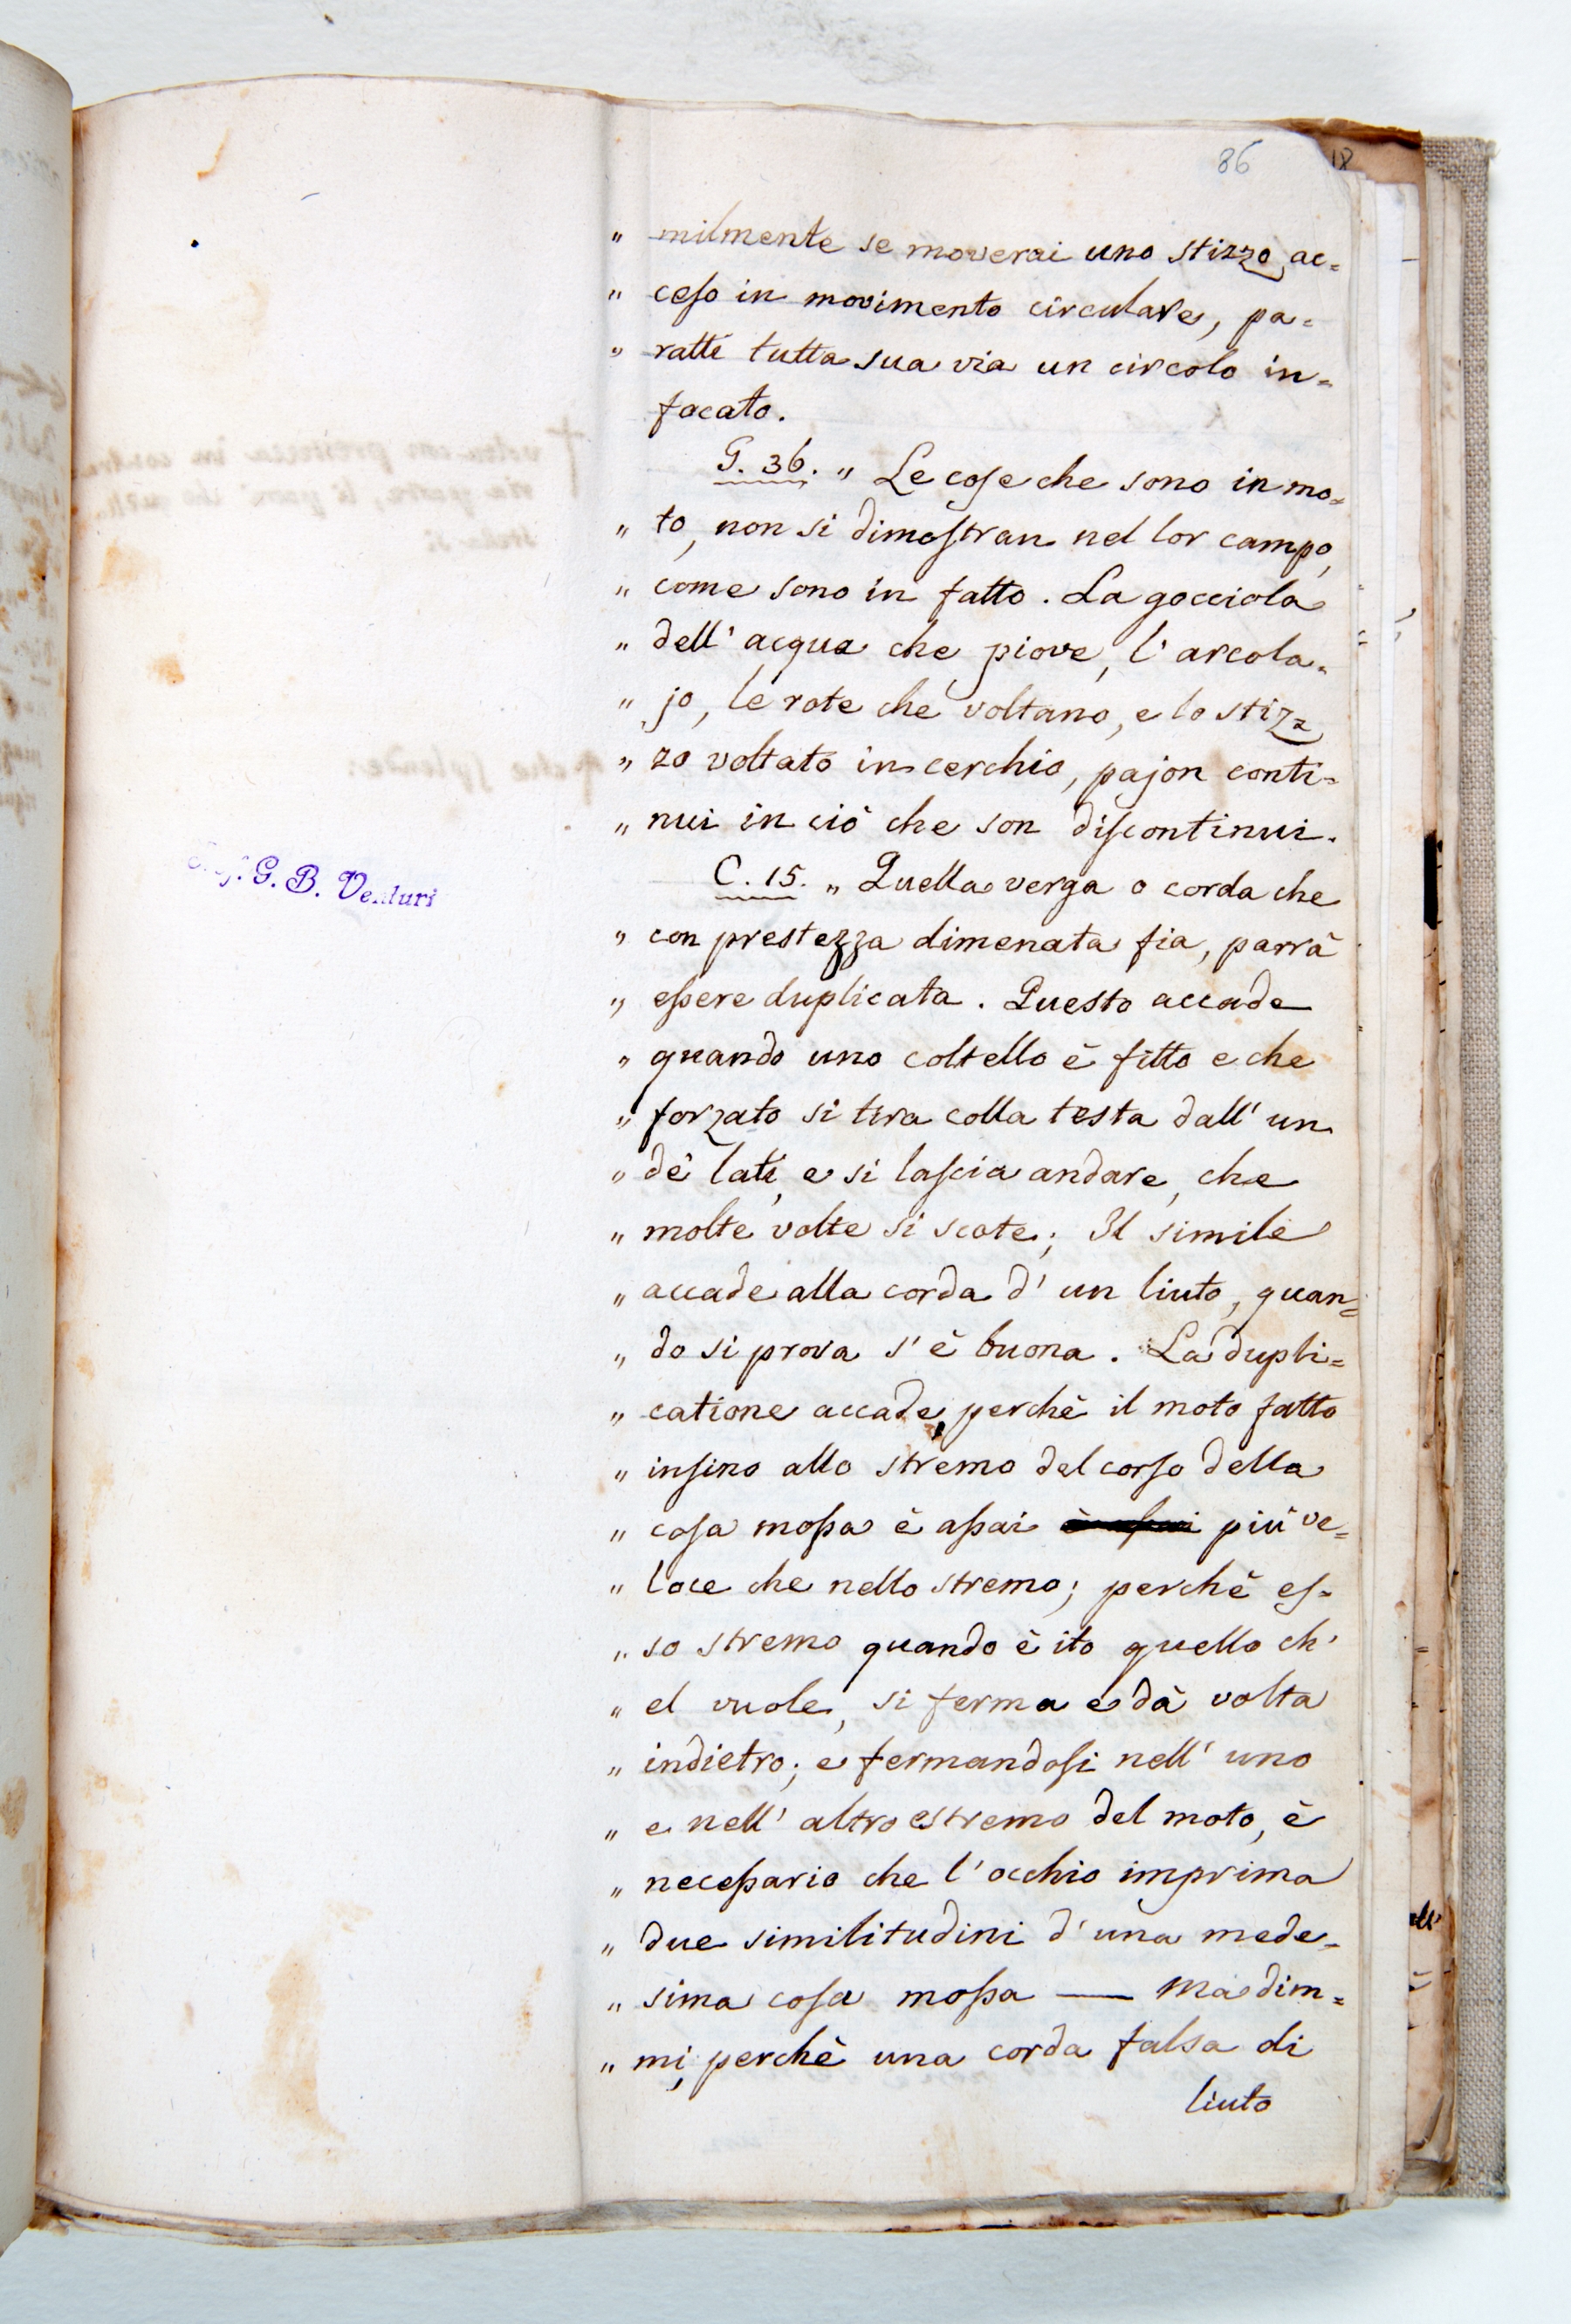 86
18
„ milmente se moverai uno stizzo ac=
„ ceso in movimento circulare, pa=
„ ratti tutta sua via un circolo in=
focato.
G. 36. „ Le cose che sono in mo=
„ to, non si dimostran nel lor campo,
„ come sono in fatto. La gocciola
„ dell' acqua che piove, l' arcola=
„ jo, le rote che voltano, e lo stiz=
„ zo voltato in cerchio, pajon conti=
„ nui in ciò che son discontinui.
G. B. Venturi
C. 15. „ Quella verga o corda che
„ con prestezza dimenata fia, parrà
„ essere duplicata. Questo accade
„ quando uno coltello è fitto e che
„ forzato si tira colla testa dall' un
„ de' lati, e si lascia andare, che
„ molte volte si scote; Il simile
„ accade alla corda d' un liuto, quan=
„ do si prova s' è buona. La dupli=
„ catione accade, perchè il moto fatto
„ insino allo stremo del corso della
„ cosa mossa è assai più ve=
„ loce che nello stremo; perchè es=
„ so stremo quando è ito quello ch'
„ el vuole, si ferma e dà volta
„ indietro; e fermandosi nell' uno
„ e nell' altro estremo del moto, è
„ necessario che l' occhio imprima
„ due similitudini d' una mede=
„ sima cosa mossa — Ma dim=
„ mi, perchè una corda falsa di
liuto